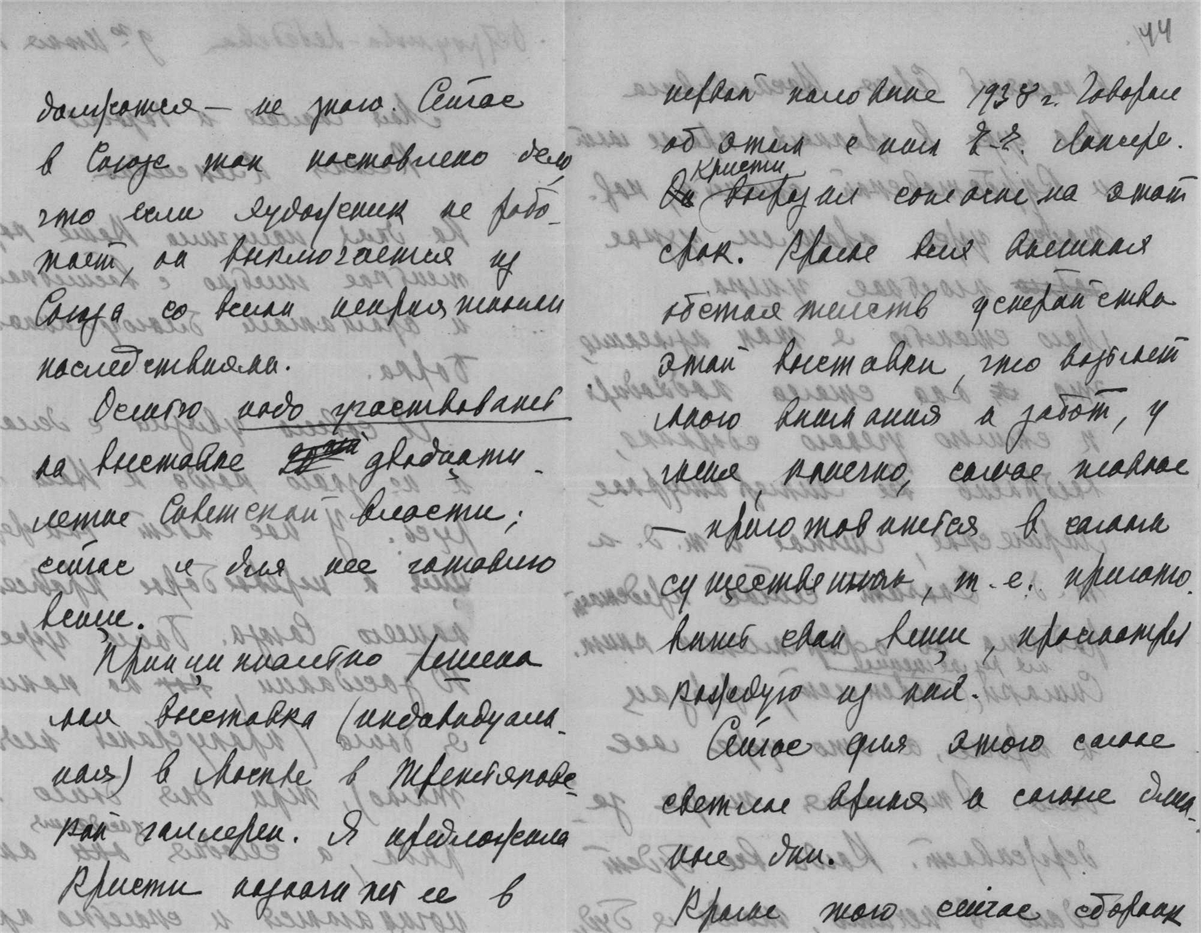 должится — не знаю. Сейчас
в Союзе так поставлено дело,
что если художник не рабо-
тает, он выключается из
Союза со всеми неприятными
последствиями.
Осенью надо участвовать
на выставке двадцати-
летие Советской власти;
сейчас и для нее готовлю
вещи.
Принципиально решена
моя выставка (индивидуаль-
ная) в Москве в Третьяковс-
кой галлерее. Я предложила
Кристи назначить ее в
44
первой половине 1938 г. Говорил
об этом с ним Е. Е. Лансере.
Кристи
Он выразил согласие на этот
срок. Кроме всех внешних
обстоятельств устройства
этой выставки, что возьмет
много внимания и забот, у
меня, конечно, самое главное
— приготовиться в самом
существенном, т. е. пригото-
вить свои вещи, просмотрев
каждую из них.
Сейчас для этого самое
светлое время и самые длин-
ные дни.
Кроме того сейчас сборник